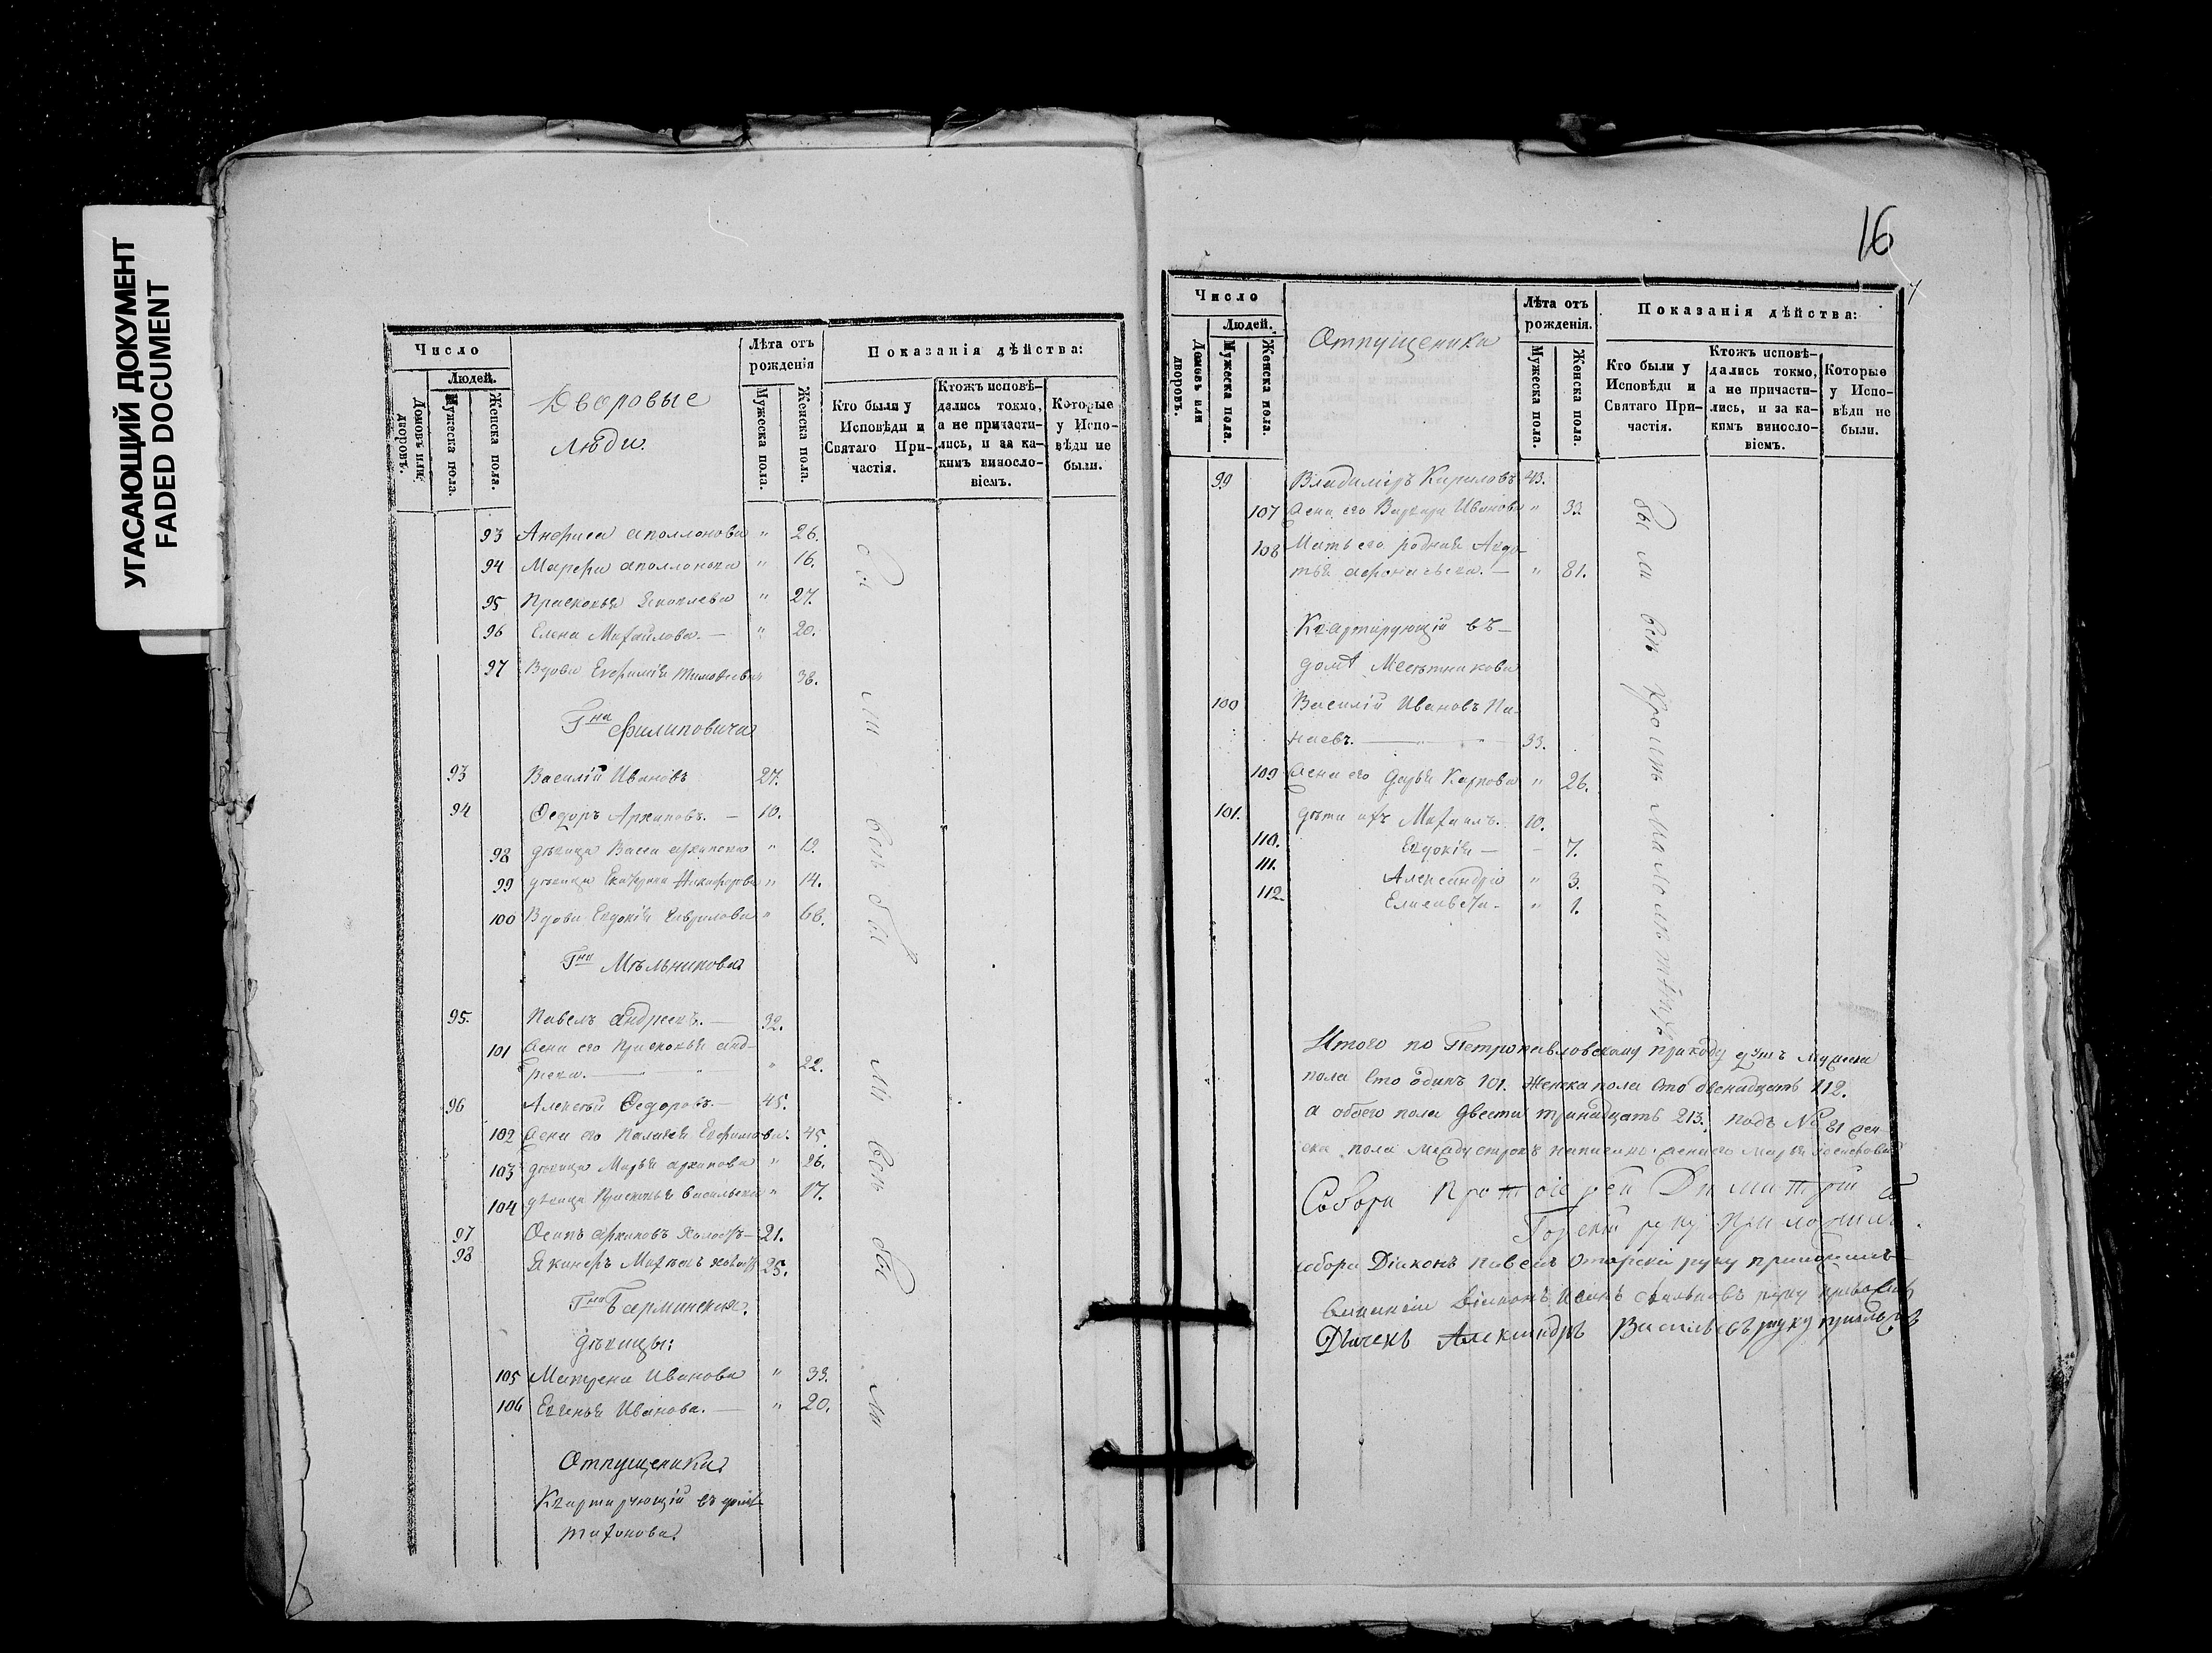 УГАСАЮЩИЙ ДОКУМЕНТ
FADED DOCUMENT
Число
Людей.
Домовъ или дворовъ.
Мужеска пола.
Женска пола.
Дворовые
люди.
Лѣта отъ
рожденія
Мужеска пола.
Женска пола.
Показанія дѣйства:
Кто были у
Исповѣди и
Святаго При-
частія.
Ктожъ исповѣ-
дались токмо,
а не причасти-
лись, и за ка-
кимъ винословіемъ.
Которые
у Испо-
вѣди не
были.
93 Анфиса Аполлонова " 26.
94 Марфа Аполлонова " 16.
95 Прасковья Яковлева " 27.
96 Елена Михайлова. — " 20.
97 Вдова Евфимія Тимофеева 38.
Гна Филиповича
93 Василій Ивановъ 27.
94 Ѳедоръ Архиповъ. — 10.
98 дѣвица Васса Архипова " 19.
99 дѣвица Екатерина Никифорова " 14.
100 Вдова Евдокія Гаврилова " 68.
Гна Мѣльникова
95. Павелъ Андреевъ. — 32.
101 Жена его Прасковья Анд-
реева. — " 22.
96 Алексѣй Ѳедоровъ. — 45.
102 Жена его Пелагея Евфимова. 45.
103 дѣвица Марья Архипова " 26.
104 дѣвица Прасковья Васильева " 17.
97 Осипъ Архиповъ холостъ — 21.
98 Михѣевъ холостъ 25.
Гна Барминская.
дѣвицы:
105 Матрена Иванова " 33.
106 Евгенья Иванова. — " 20.
Отпущеники
Квартирующій въ домѣ
Тихонова.
бы ли всѣ бы ли всѣ бы ли
16
Число
Людей.
Домовъ или дворовъ.
Мужеска пола.
Женска пола.
Отпущеники
Лѣта отъ
рожденія.
Мужеска пола.
Женска пола.
Показанія дѣйства:
Кто были у
Исповѣди и
Святаго При-
частія.
Ктожъ исповѣ-
дались токмо,
а не причасти-
лись, и за ка-
кимъ винословіемъ.
Которые
у Испо-
вѣди не
были.
99 Владиміръ Кириловъ 43.
107 Жена его Варвара Иванова " 33.
108 Мать его родная Авдо-
тья Афонасьева. — " 81.
Квартирующій въ
домѣ
100 Василій Ивановъ Па-
наевъ. — 33.
109 Жена его Дарья Карпова " 26.
101. дѣти ихъ Михаилъ. 10.
110. Евдокія — 7.
111. Александра " 3.
112. Елисавета. " 1.
бы ли всѣ кромѣ малолѣтнихъ
Итого по Петропавловскому приходу душъ мужеска
пола сто одинъ 101. Женска пола сто двенадцать 112.
а обоего пола двести тринадцать 213. подъ № 81 жен-
ска пола между строкъ написано: жена его Марья
Собора Протоіерей Димитрій
руку приложилъ.
собора Діаконъ Павелъ руку приложилъ
Діаконъ руку приложилъ
Дьячекъ Александръ Васильевъ руку приложилъ